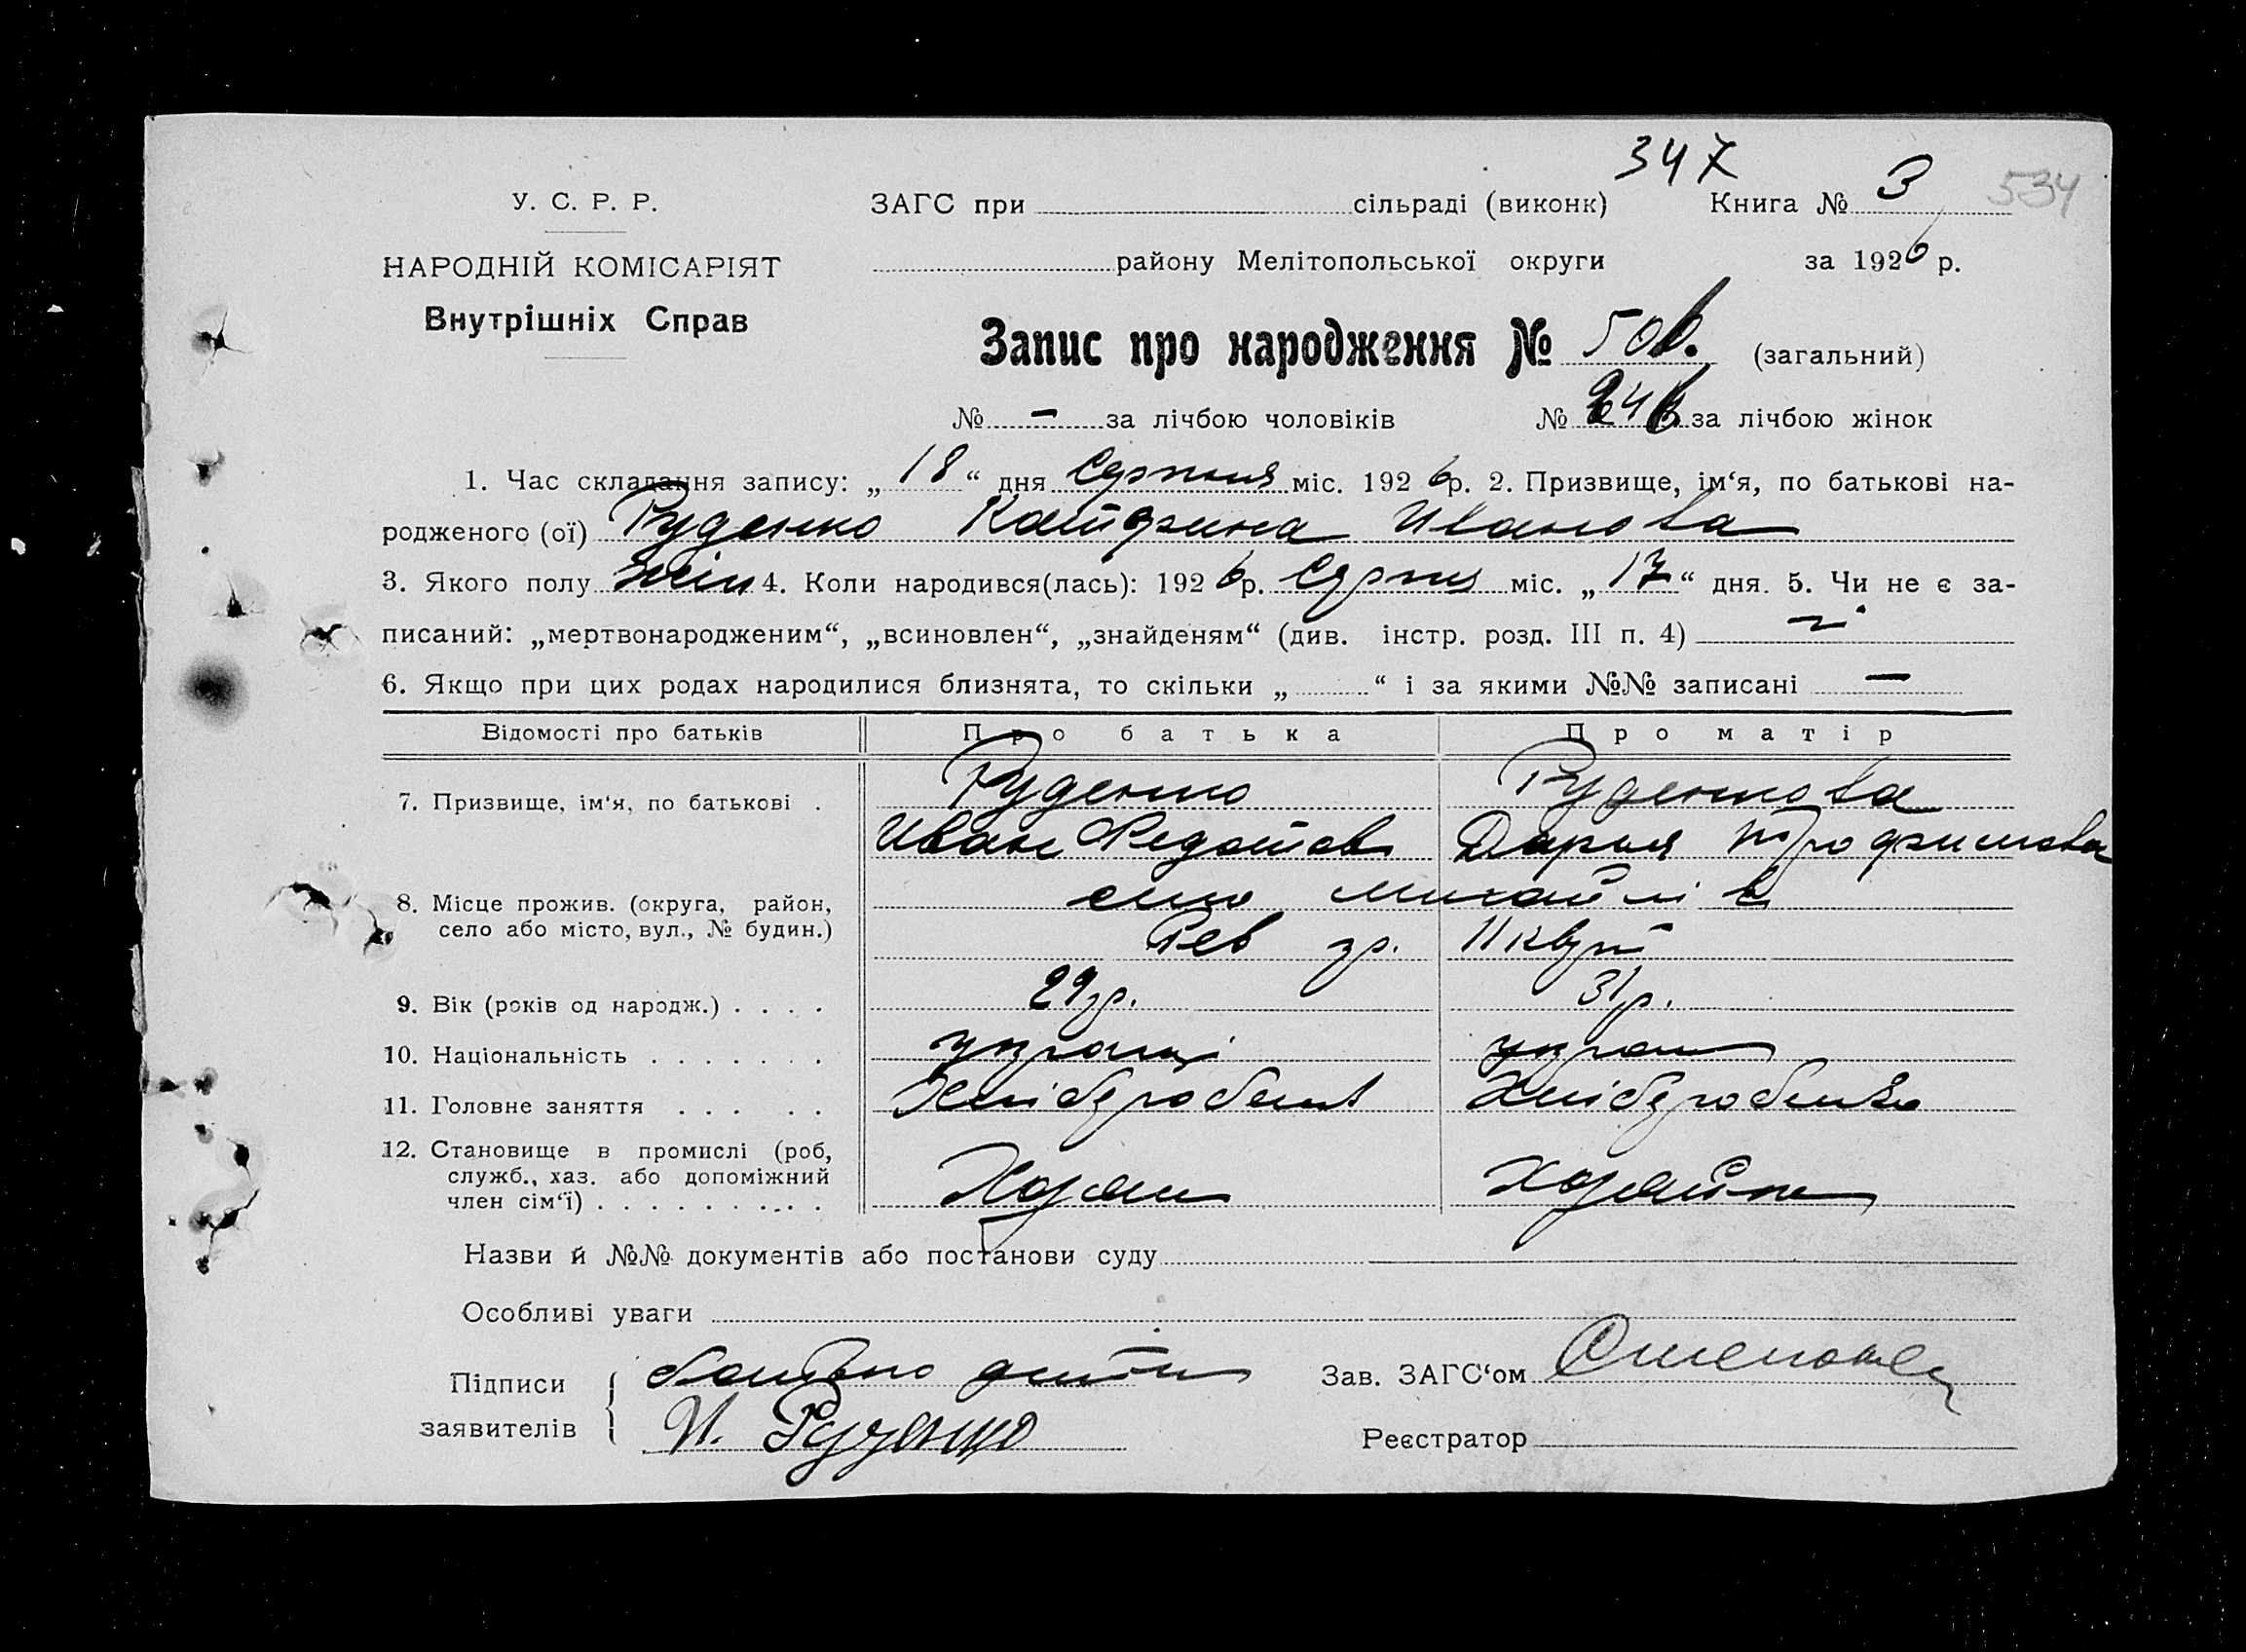 347
У. С. Р. Р. ЗАГС при сільраді (виконк) Книга № 3 534
НАРОДНІЙ КОМІСАРІЯТ району Мелітопольської округи за 1926 р.
Внутрішніх Справ
Запис про народження № 506. (загальний)
№ — за лічбою чоловіків № 246 за лічбою жінок
1. Час складання запису: „18“ дня Серпня міс. 1926р. 2. Призвище, ім‘я, по батькові на-
родженого (ої) Руденко Катерина Иванова
3. Якого полу жін 4. Коли народився(лась): 1926р. Серпня міс. „17“ дня. 5. Чи не є за-
писаний: „мертвонародженим“, „всиновлен“, „знайденям“ (див. інстр. розд. III п. 4) ні
6. Якщо при цих родах народилися близнята, то скільки „ “ і за якими №№ записані —
Відомості про батьків Про батька Про матір
7. Призвище, ім‘я, по батькові . Руденко Руденкова
Иван Федотов Дарья Трофимова
8. Місце прожив. (округа, район, село Михайлів
село або місто, вул., № будин.) Рев
9. Вік (років од народж.) . . . . 29 р. 31 р.
10. Національність . . . . . . . украінц украин
11. Головне заняття . . . . . Хлібороб Хлібороб
12. Становище в промислі (роб,
служб., хаз. або допоміжний Хозяин Хозяйка
член сім‘ї) . . . . . . . . . .
Назви й №№ документів або постанови суду
Особливі уваги
Підписи батько дитини Зав. ЗАГС‘ом
заявителів И. Руденко Реєстратор